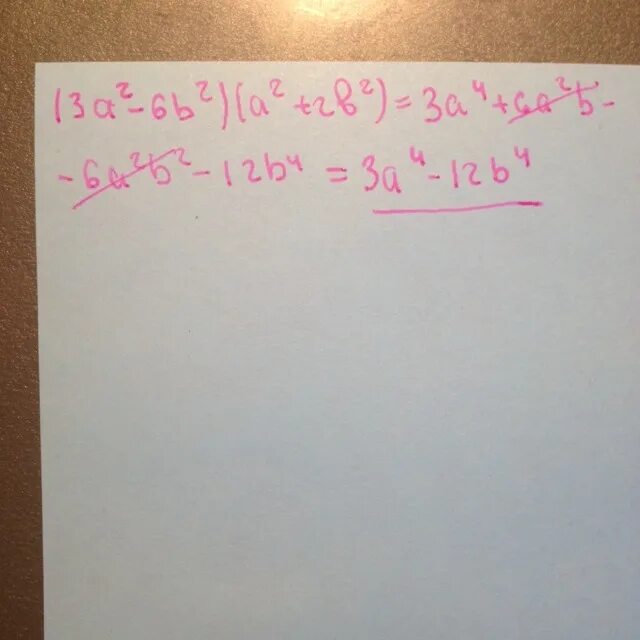 (3a²-6b²)(a²+2b²)=3a⁴+6a²b-
-6a²b²-12b⁴=3a⁴-12b⁴